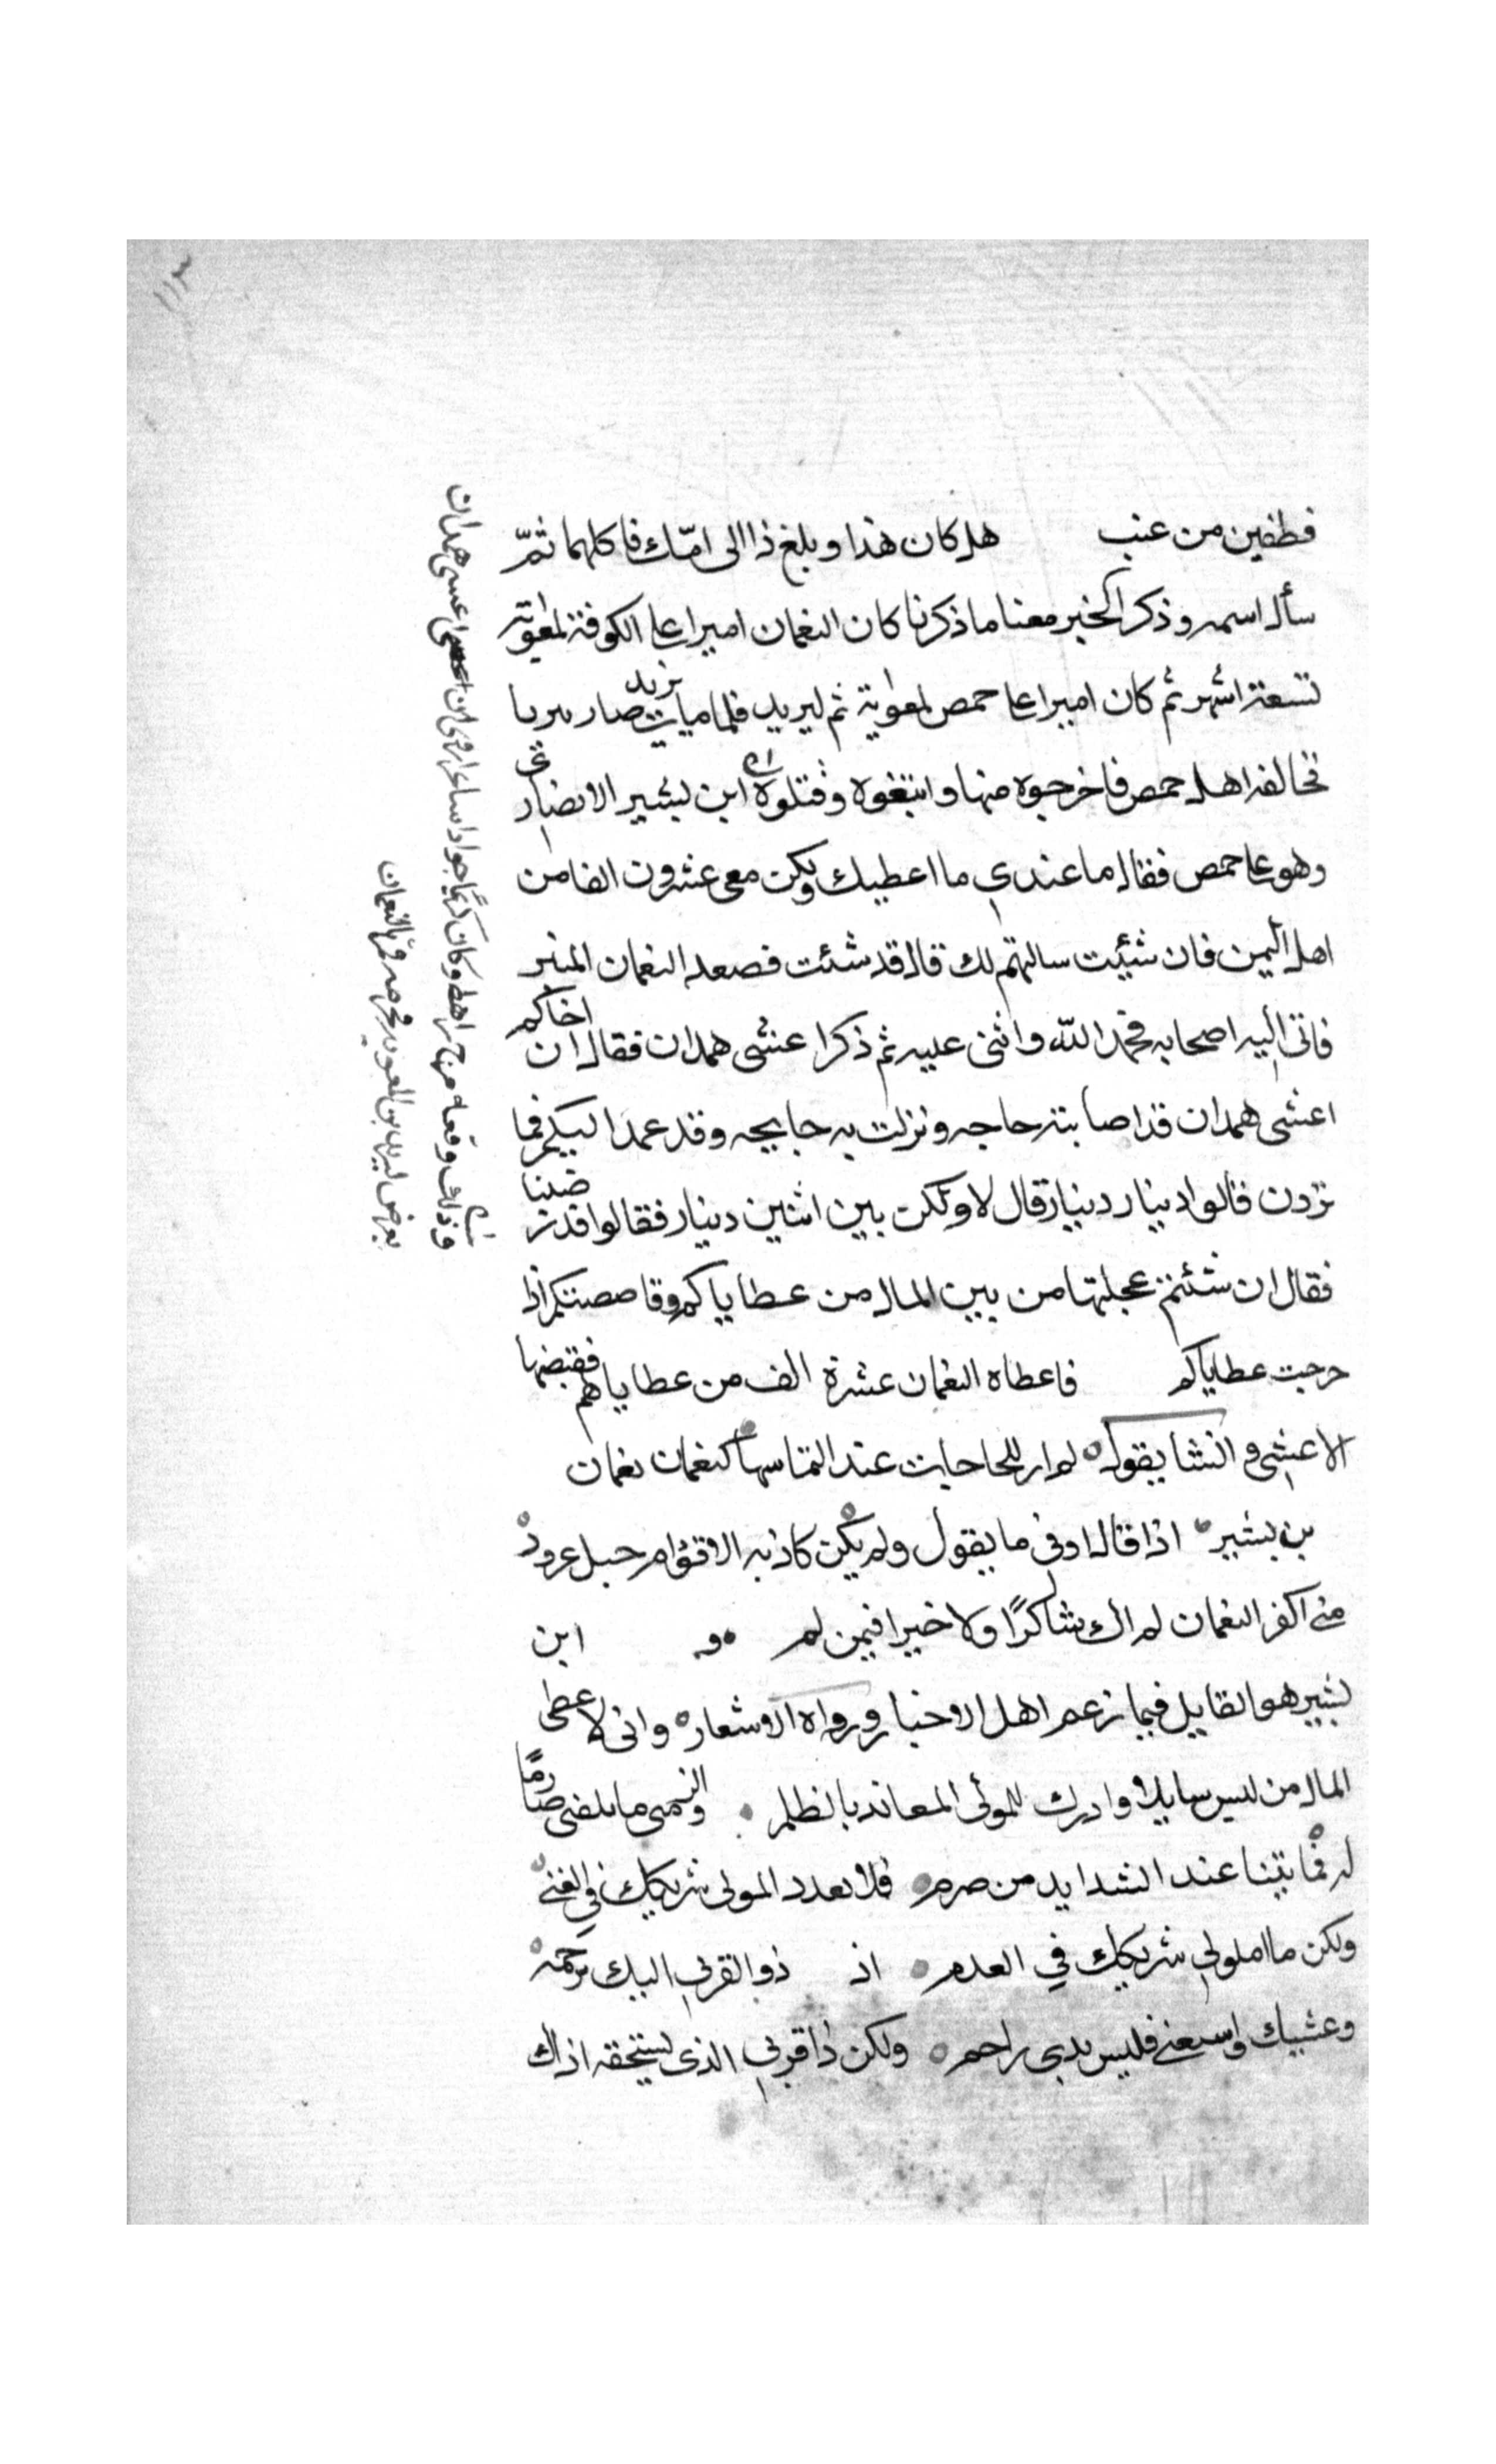 ١١٣
قطفين من عنب هل كان هذا وبلغ ذا الى امّك فاكلهما ثمّ
سأل اسمه وذكر الخبر معنا ما ذكرنا كان النعمان اميرا علي الكوفة لمعوية
تسعة اشهر ثم كان اميرا علي حمص لمعوية ثم ليزيد فلما مات يزيد صار
فخالفه اهل حمص فاخرجوه منها واتبعوه وقتلوه ابن بشير الانصاري
وهو علي حمص فقال ما عندي ما اعطيك ولكن معي عشرون الفا من
اهل اليمن فان شيئت سالتهم لك قال قد شئت فصعد النعمان المنبر
فاتى اليه اصحابه فحمد الله واثنى عليه ثم ذكر اعشى همدان فقال ان اخاكم
اعشى همدان قد اصابته حاجه ونزلت به جايحه وقد عمد اليكم فما
تردن قالوا دينار دينار قال لا ولكن بين اثنين دينار فقالوا قد رضينا
فقال ان شئتم عجلتها من بيت المال من عطاياكم وقاصصتكم اذا
خرجت عطاياكم فاعطاه النعمان عشرة الف من عطاياهم فقبضها
الاعشى وانشا يقول لم ار للحاجات عند التماسها كنعمان نعمان
بن بشير اذا قال اوفى ما يقول ولم يكن كاذبه الاقوام حبل غرور
متى اكفر النعمان لم اك شاكرًا ولا خير فيمن لم ابن
بشير هو القايل فيما زعم اهل الاخبار ورواه الاشعار وانى لاعطى
المال من ليس سايلا وادرك للمولى المعاند بالظلم وانى متى ما يلقنى صارمًا
له فما بيننا عند الشدايد من صرم فلا تعدد المولى شريكك في الغنى
ولكن ما املولي شريكك في العدم اذ ذو القربى اليك برحمه
وغشيك واسيغنى فليس بدى راحم ولكن ذا قربى الذي يستحقه اذاك
اعشى همدان
وكان كريمًا جوادا شاعرا
وذلك وقعه مرج راهط
فرّ النعمان